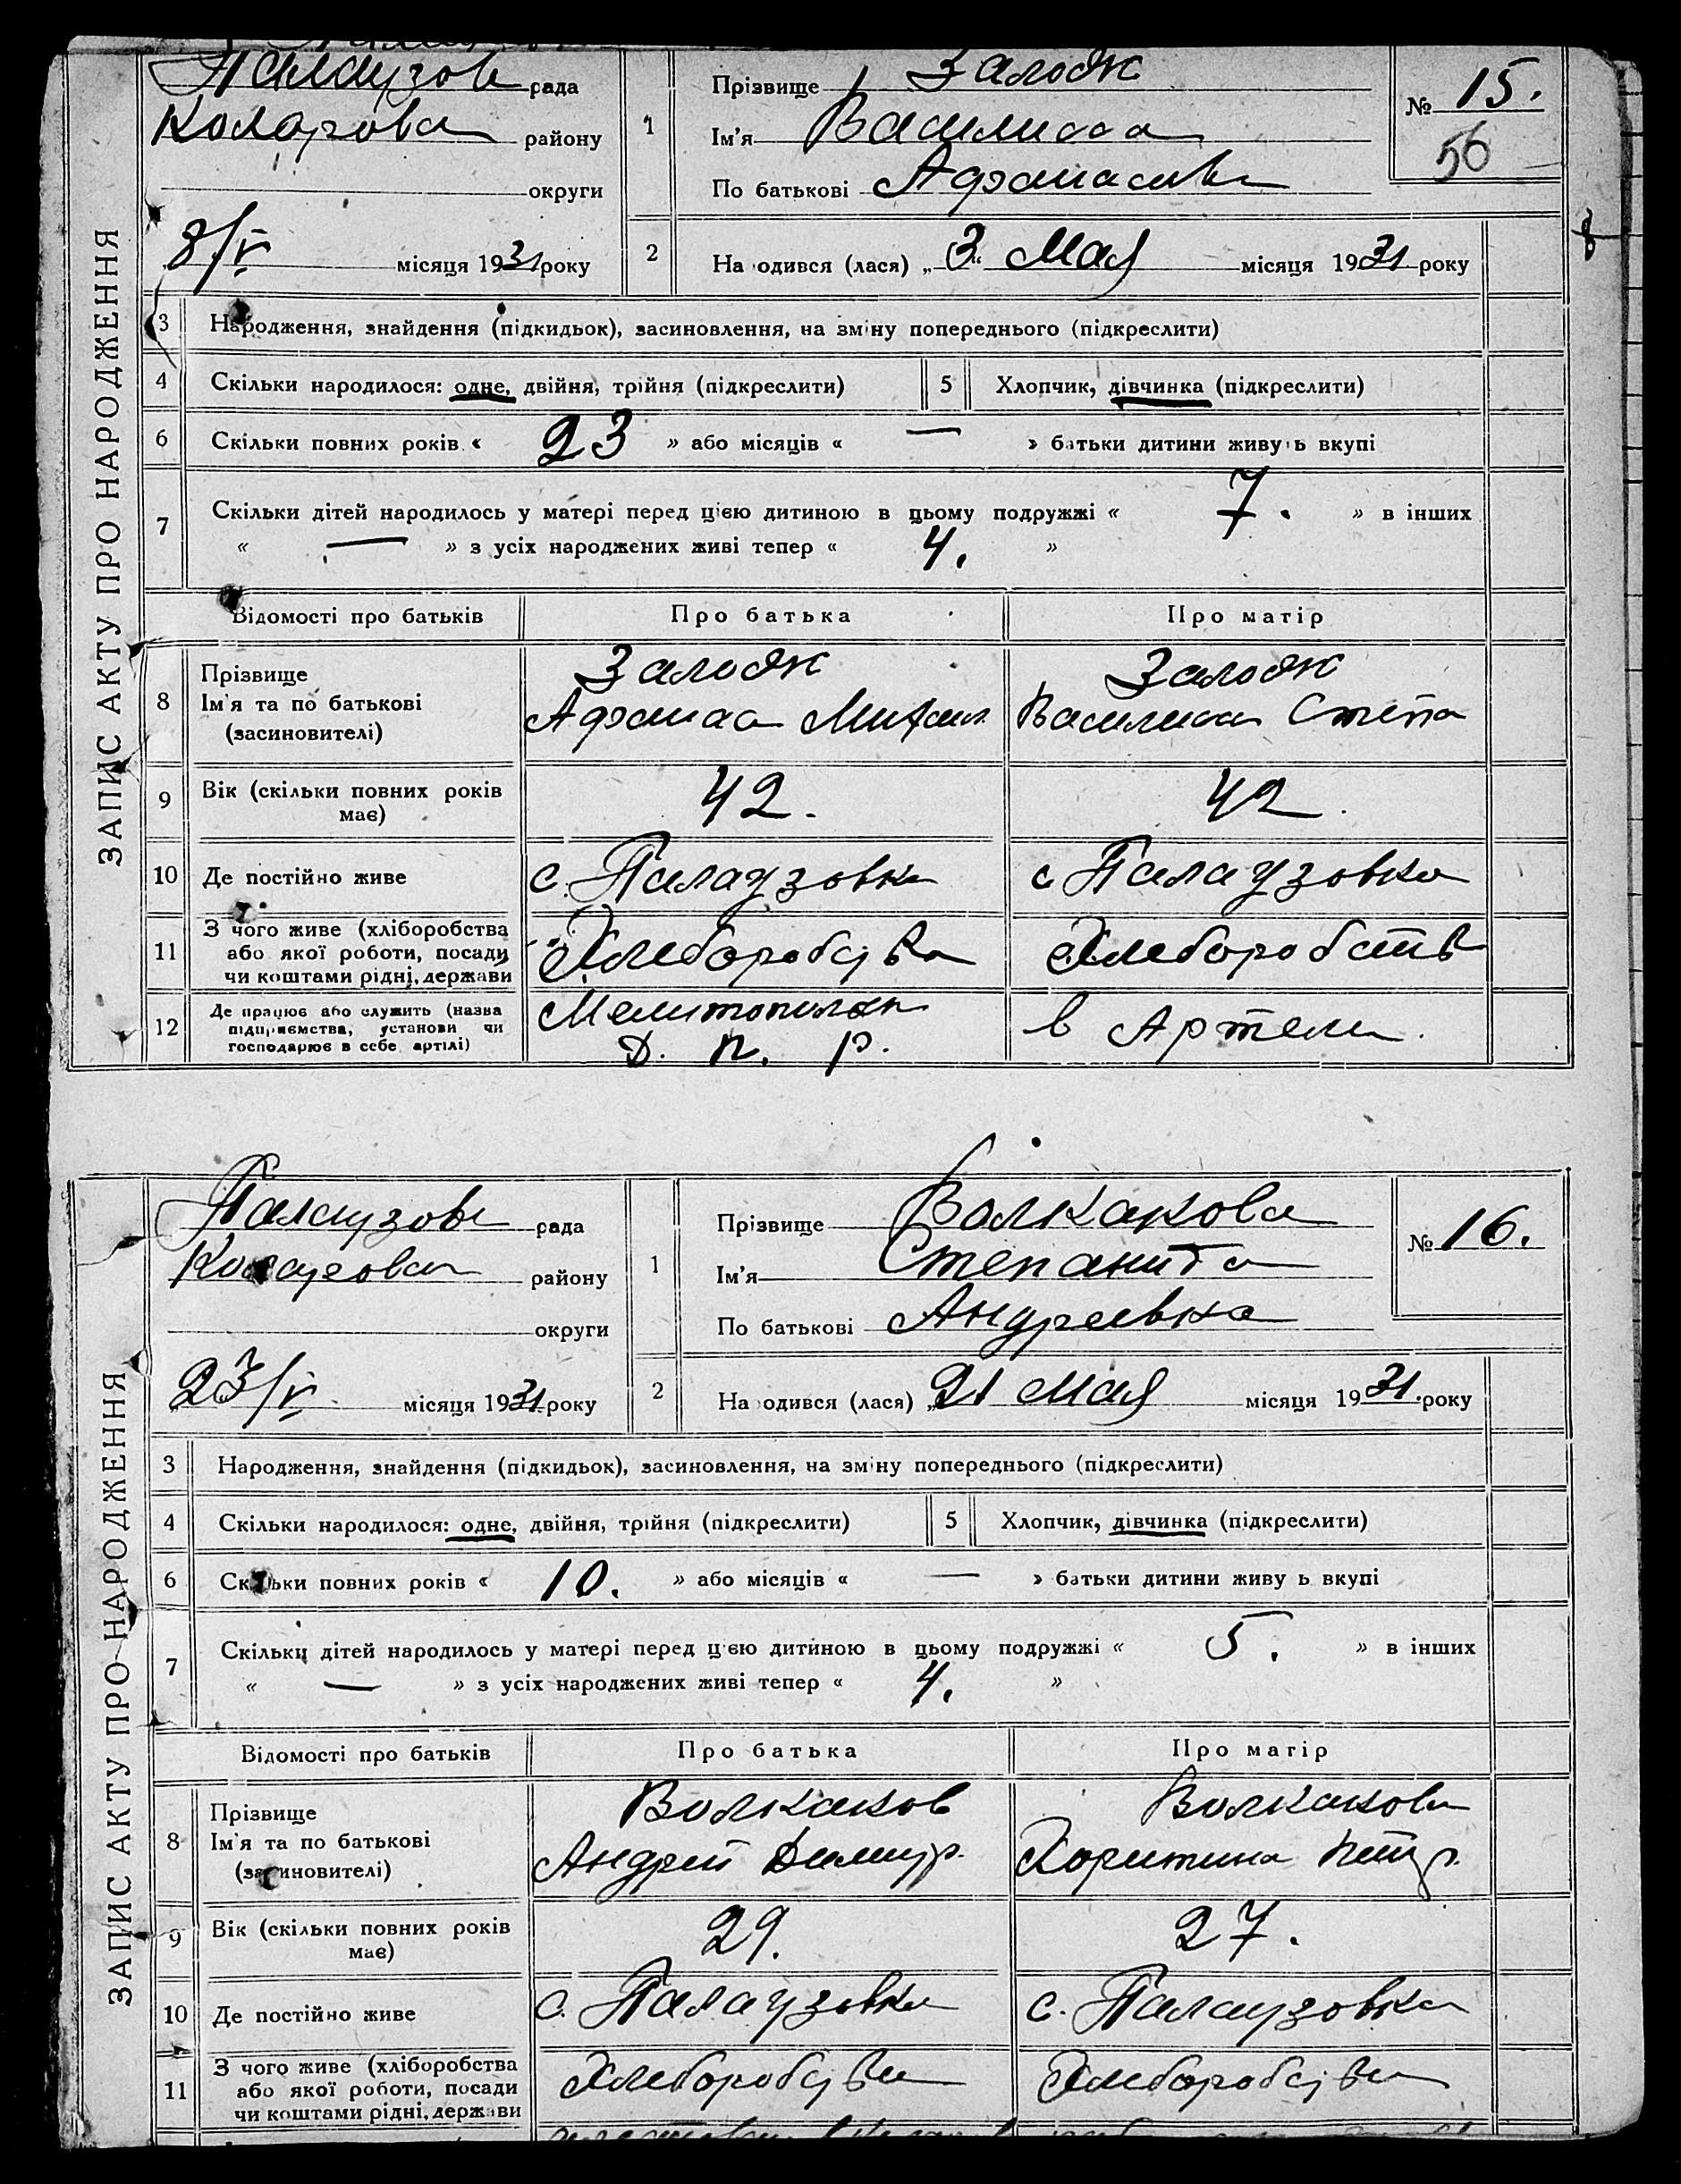 ЗАПИС АКТУ ПРО НАРОДЖЕННЯ
Палаузов рада
Коларова району
округи
8/V місяця 1931 року
1
Прізвище Залож
Ім'я Василиса
По батькові Афанасовн
№ 15.
56
2
На одився (лася) „3“ Мая місяця 1931 року
3 Народження, знайдення (підкидьок), засиновлення, на зміну попереднього (підкреслити)
4 Скільки народилося: одне, двійня, трійня (підкреслити) 5 Хлопчик, дівчинка (підкреслити)
6 Скільки повних років « 23 » або місяців « — » батьки дитини живуть вкупі
7 Скільки дітей народилось у матері перед цією дитиною в цьому подружжі « 7. » в інших
« — » з усіх народжених живі тепер « 4. »
Відомості про батьків Про батька Про матір
8 Прізвище
Ім'я та по батькові
(засиновителі)
Залож
Афанас Михаил
Залож
Василиса Степа
9 Вік (скільки повних років
має)
42. 42.
10 Де постійно живе с. Палаузовка с Палаузовка
11 З чого живе (хліборобства
або якої роботи, посади
чи коштами рідні, держави
Хлеборобства Хлеборобств
12 Де працює або служить (назва
підприємства, установи чи
господарює в себе артілі)
Мелитополь
Д. П. Р.
в Артели.
ЗАПИС АКТУ ПРО НАРОДЖЕННЯ
Палаузов рада
Коларова району
округи
23/V місяця 1931 року
1
Прізвище Волкакова
Ім'я Степанида
По батькові Андреевна
№ 16.
2
На одився (лася) „21 Мая місяця 1931. року
3 Народження, знайдення (підкидьок), засиновлення, на зміну попереднього (підкреслити)
4 Скільки народилося: одне, двійня, трійня (підкреслити) 5 Хлопчик, дівчинка (підкреслити)
6 Скільки повних років « 10. » або місяців « — » батьки дитини живу ь вкупі
7 Скільки дітей народилось у матері перед цією дитиною в цьому подружжі « 5. » в інших
« — » з усіх народжених живі тепер « 4. »
Відомості про батьків Про батька Про матір
8 Прізвище
Ім'я та по батькові
(засиновителі)
Волкаков
Андрей Димитр.
Волкакова
Харитина Петр.
9 Вік (скільки повних років
має)
29. 27.
10 Де постійно живе с. Палаузовка с. Палаузовка
11 З чого живе (хліборобства
або якої роботи, посади
чи коштами рідні, держави
Хлеборобства Хлеборобства